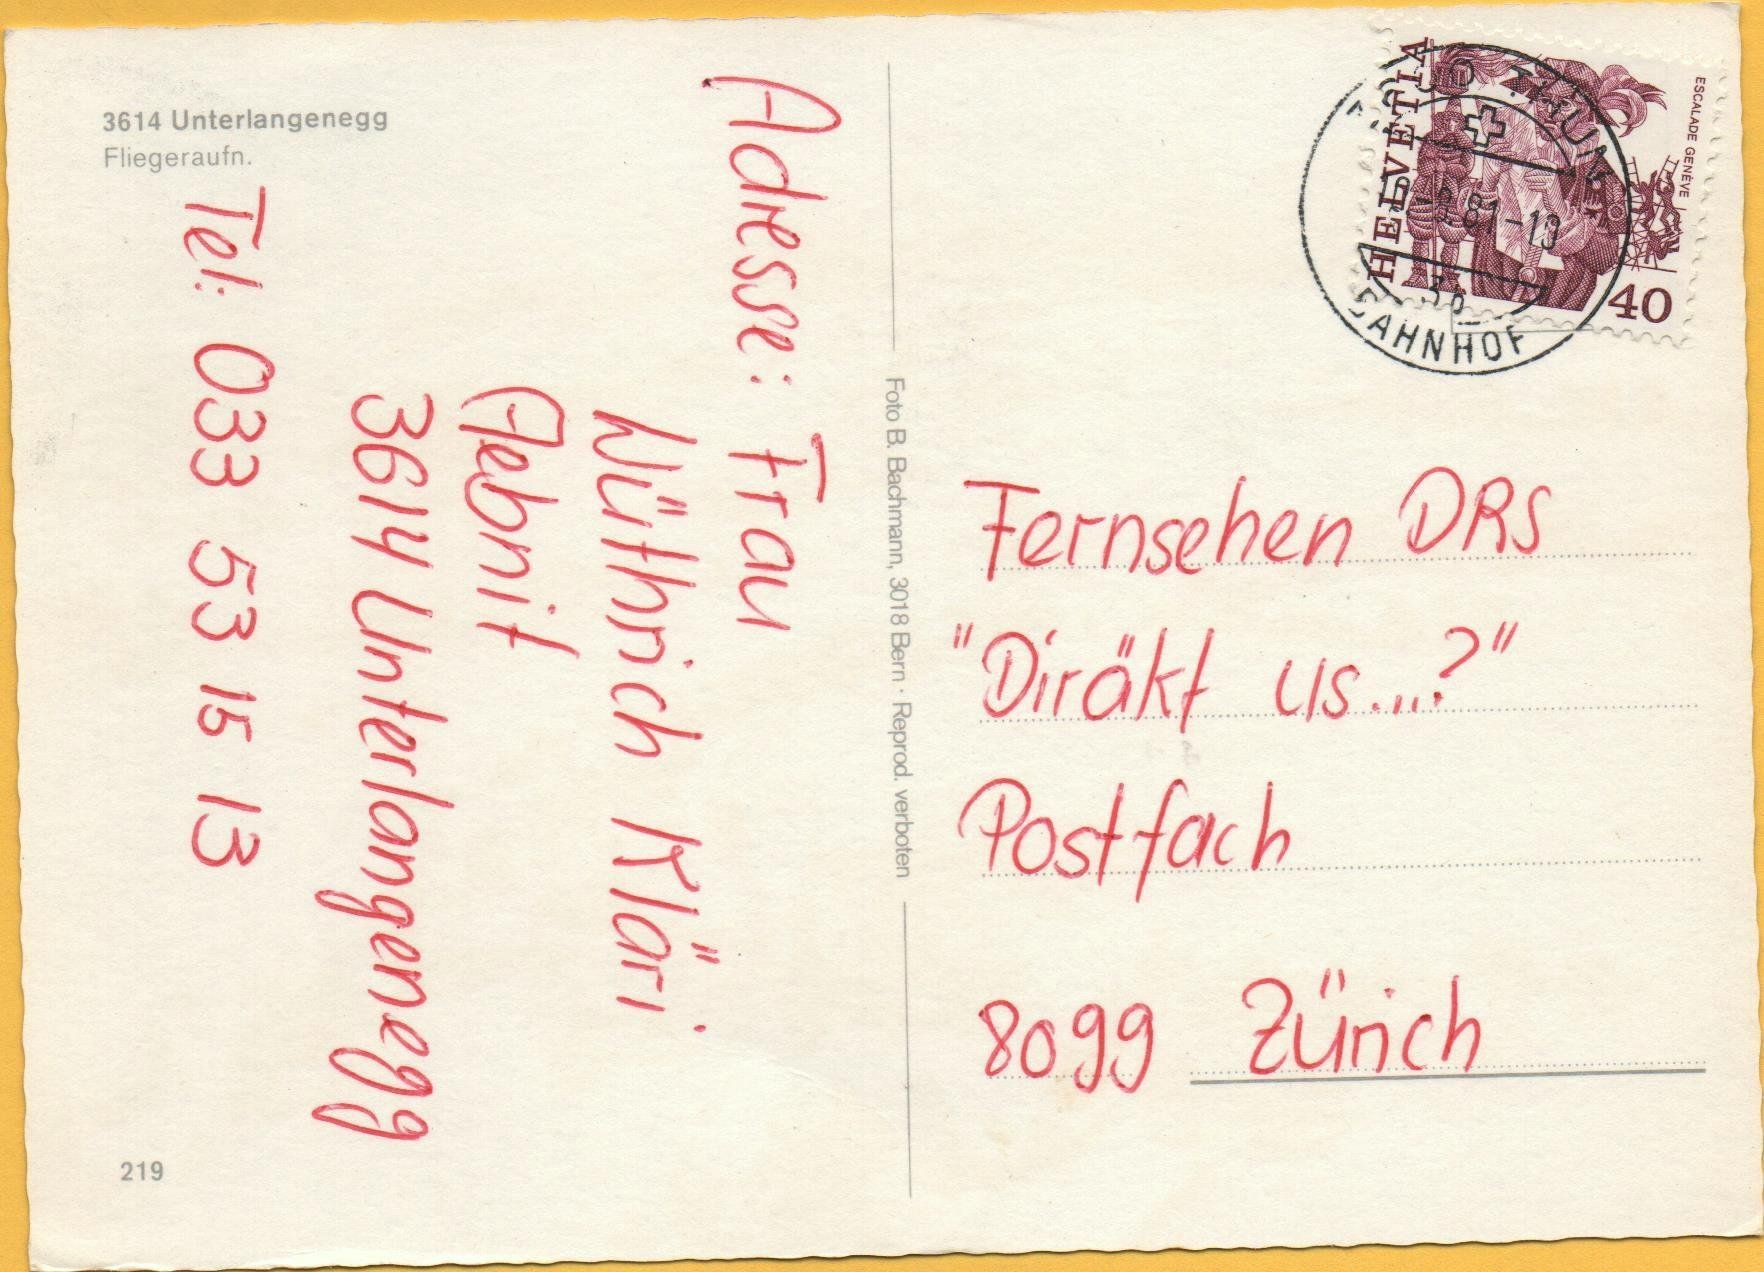 3614 Unterlangenegg
Fliegeraufn.
Adresse: Frau
Wüthrich Kläri
Aebnit
3614 Unterlangenegg
Tel: 033 53 15 13
219
Foto B. Bachmann, 3018 Bern · Reprod. verboten
HELVETIA
ESCALADE GENÈVE
40
THUN
81-19
BAHNHOF
Fernsehen DRS
"Diräkt us...?"
Postfach
8099 Zürich